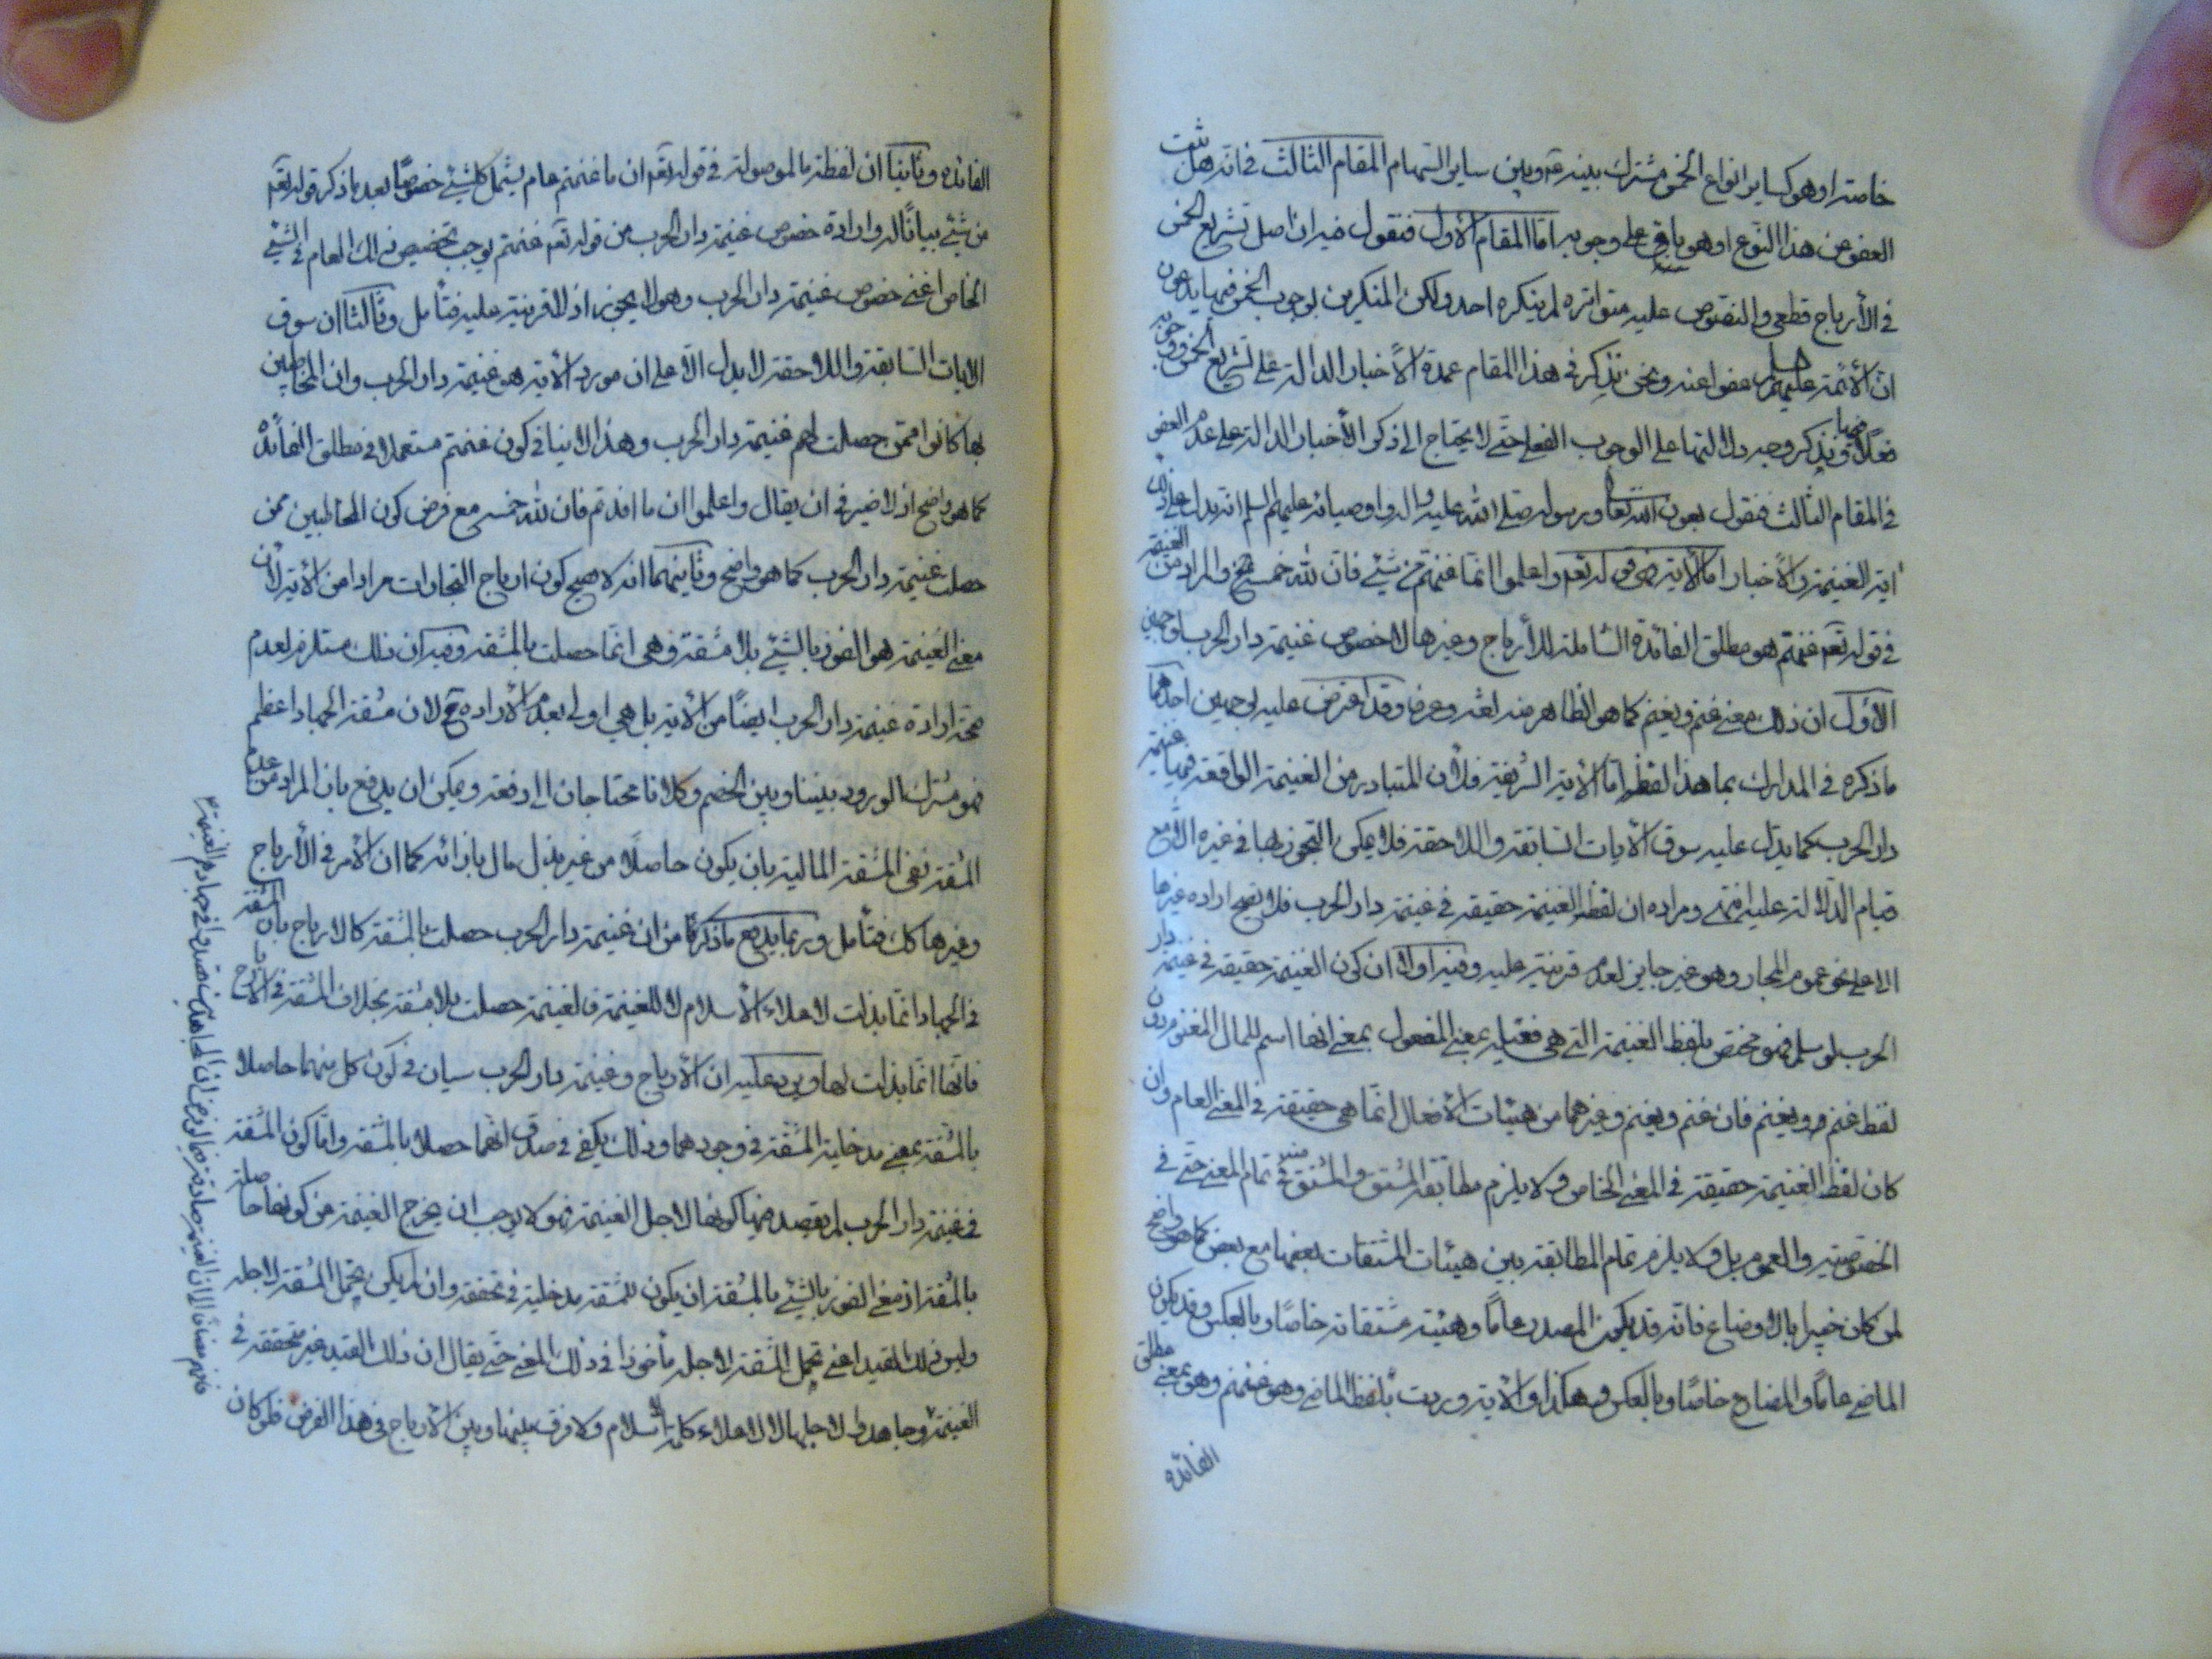 خاصته او هو كساير انواع الخمس مشترك بينه ع وبين ساير السهام المقام الثالث في انه هل ثبت
العفو عن هذا النوع او هو باقي على وجوبه اما المقام الاول فنقول فيه ان اصل تشريع الخمس
في الأرباح قطعي والنصوص عليه متواتره لم ينكره احد ولكن المنكرين لوجوب الخمس فيها يدعون
ان الأئمة عليهم عفوا عنه ونحن نذكر في هذا المقام عمدة الأخبار الدالة على تشريع الخمس ووجوبه
فعلا فيها ونذكر وجه دلالتها على الوجوب الفعلي حتى لا يحتاج الى ذكر الأخبار الدالة على عدم العفو
في المقام الثالث فنقول بعون الله تعا ورسوله صلى الله عليه واله واوصيائه عليهم السلم انه يدل على ذلك
اية الغنيمة والأخبار اما الأية فهي قوله تعه واعلموا انما غنمتم من شيئ فان لله خمسه الخ والمراد من الغنيمة
في قوله تعه غنمتم هو مطلق الفائدة الشاملة للأرباح وغيرها لا خصوص غنيمة دار الحرب لوجهين
الاول ان ذلك معنى غنم ويغنم كما هو الظاهر منه لغة وعرفا وقد اعترض عليه بوجهين احدهما
ما ذكره في المدارك بما هذا لفظه اما الأية الشريفة فلأن المتبادر من الغنيمة الواقعة فيها غنيمة
دار الحرب كما يدل عليه سوق الأيات السابقة واللاحقة فلا يمكن التجوز بها في غيره الا مع
قيام الدلالة عليه انتهى ومراده ان لفظ الغنيمة حقيقة في غنيمة دار الحرب فلا يصح اراده غيرها
الا على نحو عموم المجاز وهو غير جايز لعدم قرينة عليه وفيه اولا ان كون الغنيمة حقيقة في غنيمة دار
الحرب لو سلم فهو مختص بلفظ الغنيمة التي هي فعيلة بمعنى المفعول بمعنى انها اسم للمال المغنوم دون
لفظ غنم ويغنم فان غنم ويغنم وغيرهما من هيئات الأفعال انما هي حقيقة في المعنى العام وان
كان لفظ الغنيمة حقيقة في المعنى الخاص ولا يلزم مطابقة المشتق والمشتق منه في تمام المعنى حتى في
الخصوصية والعموم بل ولا يلزم تمام المطابقة بين هيئات المشتقات بعضها مع بعض كما هو واضح
لمن كان خبيرا بالاوضاع فانه قد يكون المصدر عاما وهيئة مشتقاته خاصا وبالعكس وقد يكون
الماضي عاما والمضارع خاصا وبالعكس وهكذا والأية وردت بلفظ الماضي وهو غنمتم وهو بمعنى مطلق
الفائده
الفائده وثانيا ان لفظة ما الموصولة في قوله تعه ان ما غنمتم عام يشمل كل شيئ خصوصا بعد ما ذكر قوله تعه
من شيئ بيانا له وارادة خصوص غنيمة دار الحرب من قوله تعه غنمتم يوجب تخصيص ذلك العام في الشيئ
الخاص اعني خصوص غنيمة دار الحرب وهو لا يجوز اذ لا قرينة عليه فتأمل وثالثا ان سوق
الايات السابقة واللاحقة لا يدل الا على ان مورد الأية هو غنيمة دار الحرب وان المخاطبين
بها كانوا ممن حصلت لهم غنيمة دار الحرب وهذا لا ينافي كون غنمتم مستعملا في مطلق الفائدة
كما هو واضح اذ لا ضير في ان يقال واعلموا ان ما افدتم فان لله خمسه مع فرض كون المخاطبين ممن
حصلت غنيمة دار الحرب كما هو واضح وثانيهما انه لا يصح كون ارباح التجارات مرادا من الأية لأن
معنى الغنيمة هو الفوز بالشيئ بلا مشقة وهي انما حصلت بالمشقة وفيه ان ذلك مستلزم لعدم
صحة ارادة غنيمة دار الحرب ايضا من الأية بل هي اولى بعدم الأراده ح لان مشقة الجهاد اعظم
فهو مشترك الورود بيننا وبين الخصم وكلانا محتاجان الى دفعه ويمكن ان يدفع بان المراد من عدم
المشقة نفي المشقة المالية بان يكون حاصلا من غير بذل مال بازائه كما ان الأمر في الأرباح
وغيرها كك فتأمل وربما يدفع ما ذكرنا من ان غنيمة دار الحرب حصلت بالمشقة كالارباح بان المشقة
في الجهاد انما بذلت لاعلاء الأسلام لا للغنيمة فالغنيمة حصلت بلا مشقة بخلاف المشقة في الارباح
فانها انما بذلت لها ويرد عليه ان الأرباح وغنيمة دار الحرب سيان في كون كل منهما حاصلا
بالمشقة بمعنى مدخلية المشقة في وجودهما وذلك يكفي في صدق انهما حصلا بالمشقة واما كون المشقة
في غنيمة دار الحرب لم يقصد فيها كونها لاجل الغنيمة فهو لا يوجب ان يخرج الغنيمة من كونها حاصلة
بالمشقة اذ معنى الفوز بالشيئ بالمشقة ان يكون للمشقة مدخلية في تحققه وان لم يكن تحمل المشقة لاجله
وليس ذلك القيد اعني تحمل المشقة لاجله مأخوذا في ذلك المعنى حتى يقال ان ذلك القيد غير متحققة في
الغنيمة وجاهدوا لاجلها لا لاعلاء كلمة الاسلام ولا فرق بينها وبين الأرباح في هذا الفرض فلو كان